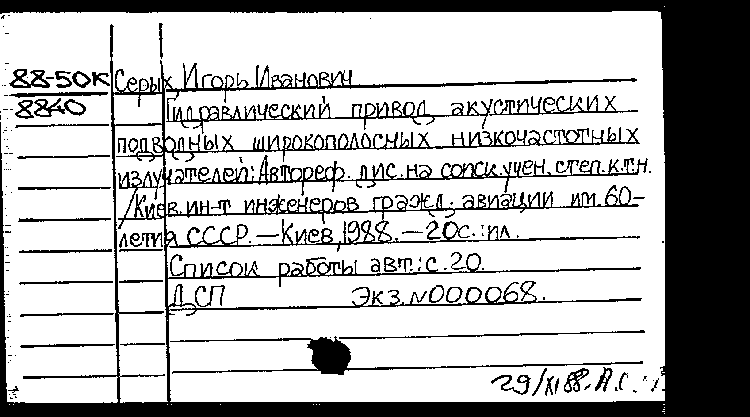 88-50К Серых, Игорь Иванович
8840 Гидравлический привод акустических
подводных широкополосных низкочастотных
излучателей: Автореф. дис. на соиск. учен. степ. к.т.н.
/Киев. ин-т инженеров гражд. авиации им. 60-
летия СССР. – Киев, 1988. – 20с.: ил.
Список работы авт.: с. 20.
ДСП Экз. N000068.
29/XI 88. Л.С.